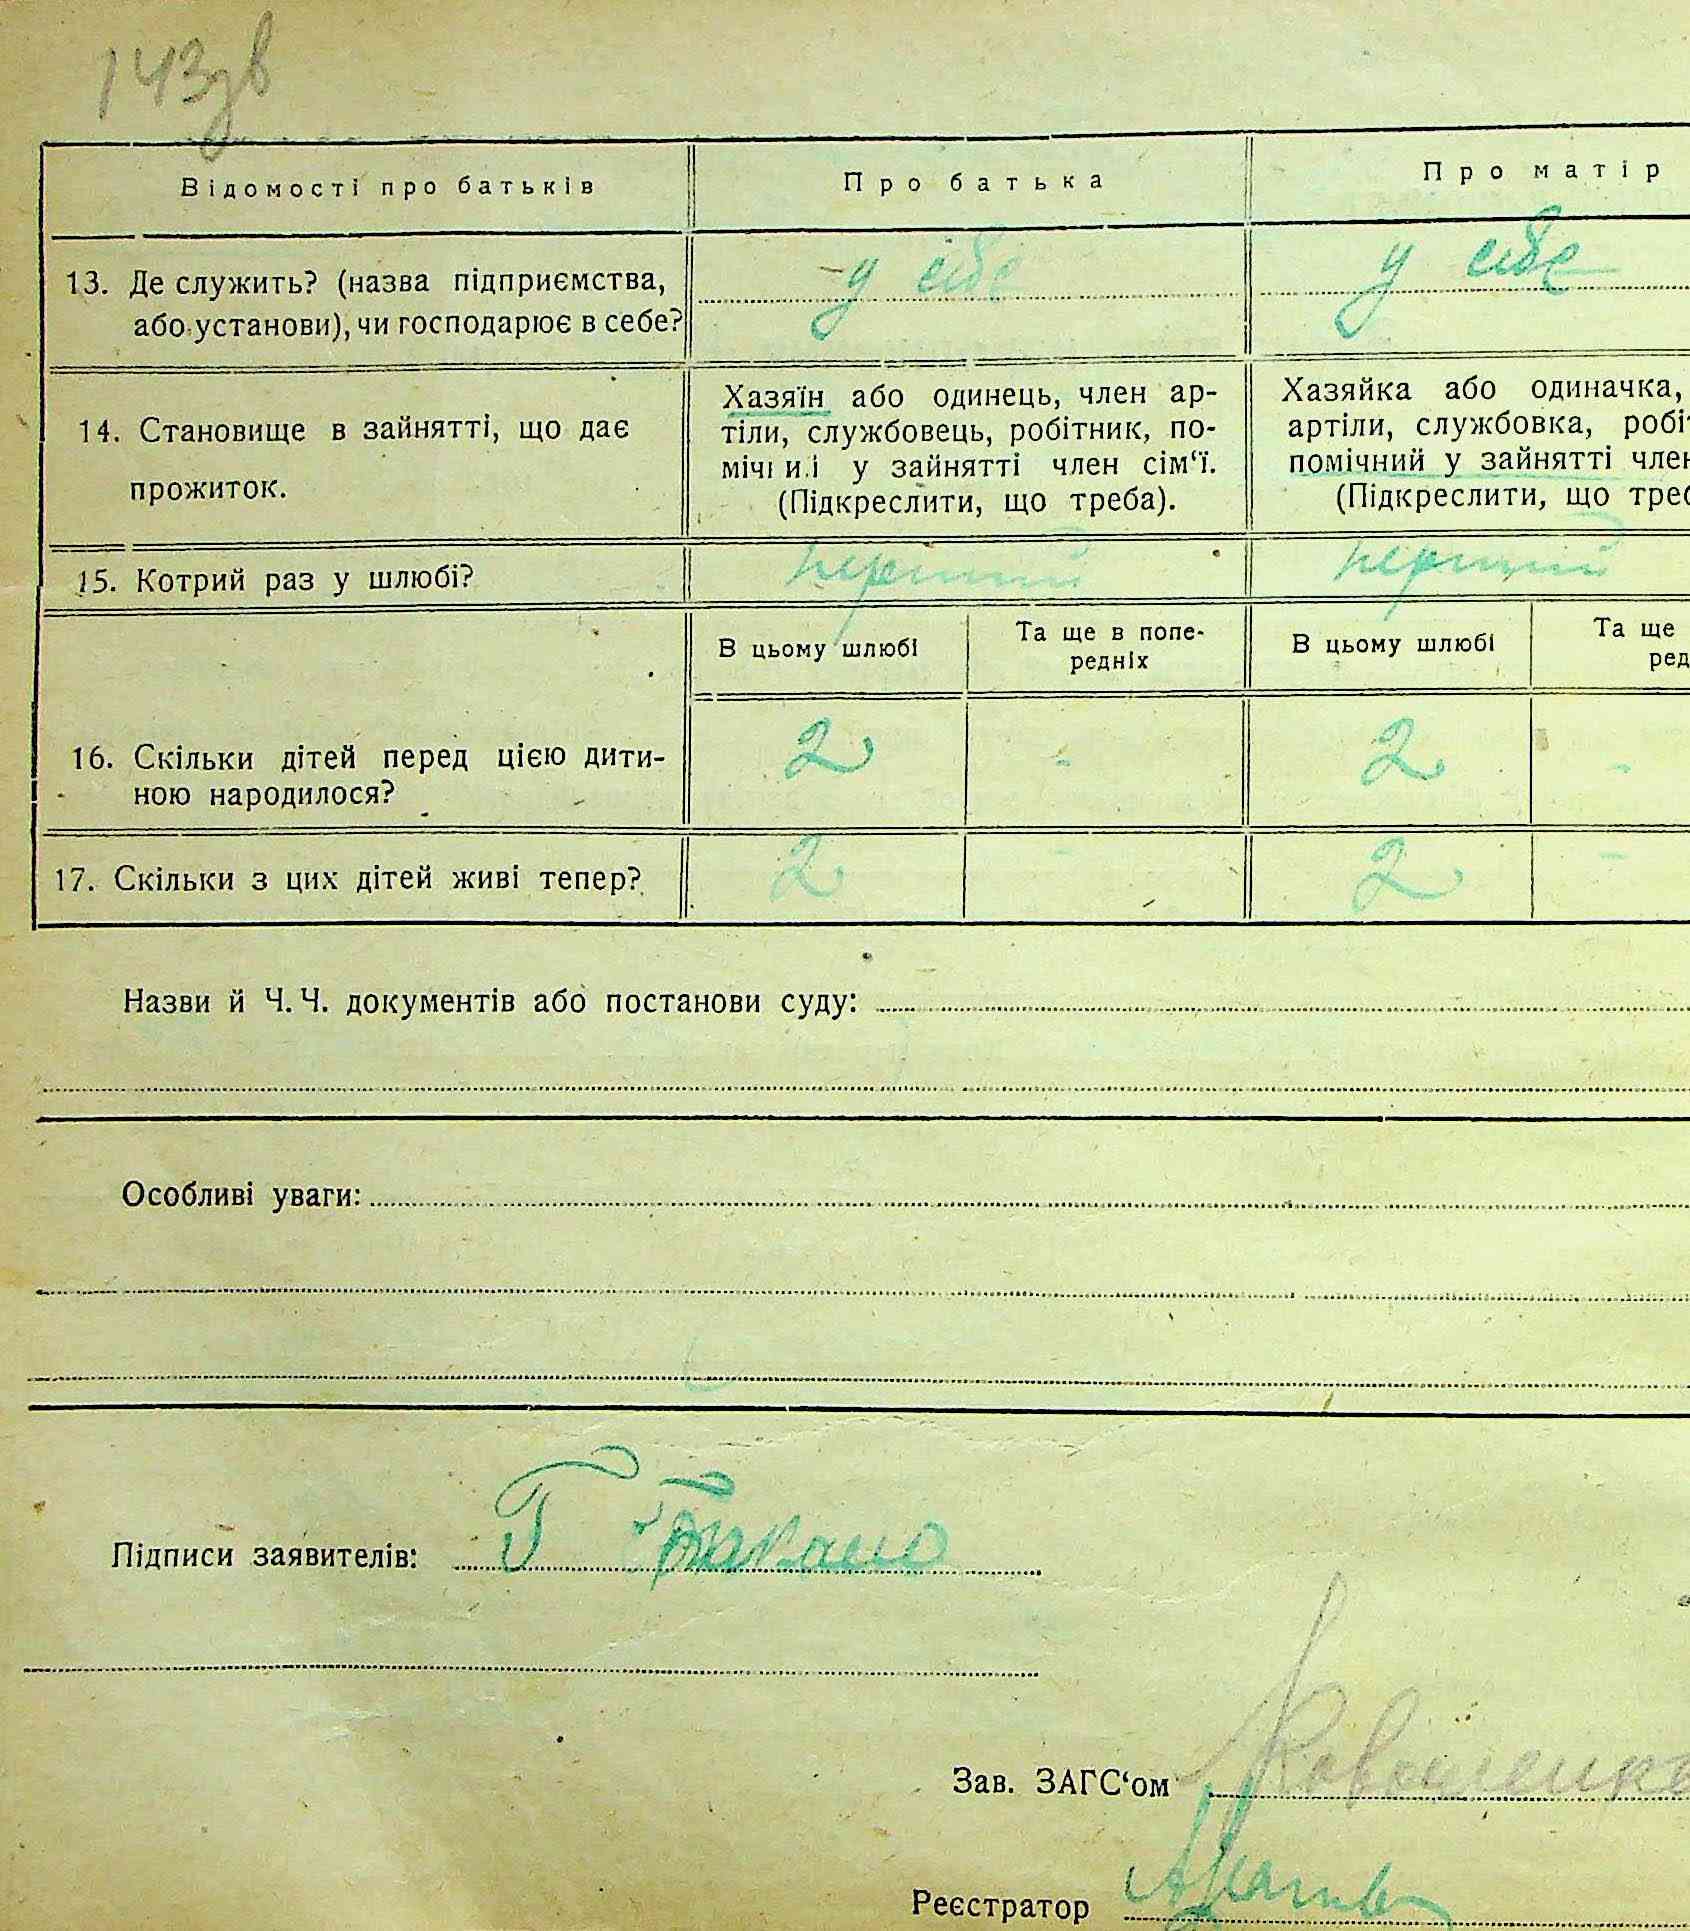 143зв
Відомості про батьків
Про батька
Про матір
13. Де служить? (назва підприємства,
або установи), чи господарює в себе?
у себе
у себе
14. Становище в зайнятті, що дає
прожиток.
Хазяїн або одинець, член ар-
тіли, службовець, робітник, по-
мічни.і у зайнятті член сім‘ї.
(Підкреслити, що треба).
Хазяйка або одиначка,
артіли, службовка, робіт
помічний у зайнятті член
(Підкреслити, що треб
15. Котрий раз у шлюбі?
перший
перший
В цьому шлюбі
Та ще в попе-
редніх
В цьому шлюбі
Та ще
ред
16. Скільки дітей перед цією дити-
ною народилося?
2 - 2 -
17. Скільки з цих дітей живі тепер?
2 - 2 -
Назви й Ч. Ч. документів або постанови суду:
Особливі уваги:
Підписи заявителів: Т
Зав. ЗАГС‘ом
Реєстратор